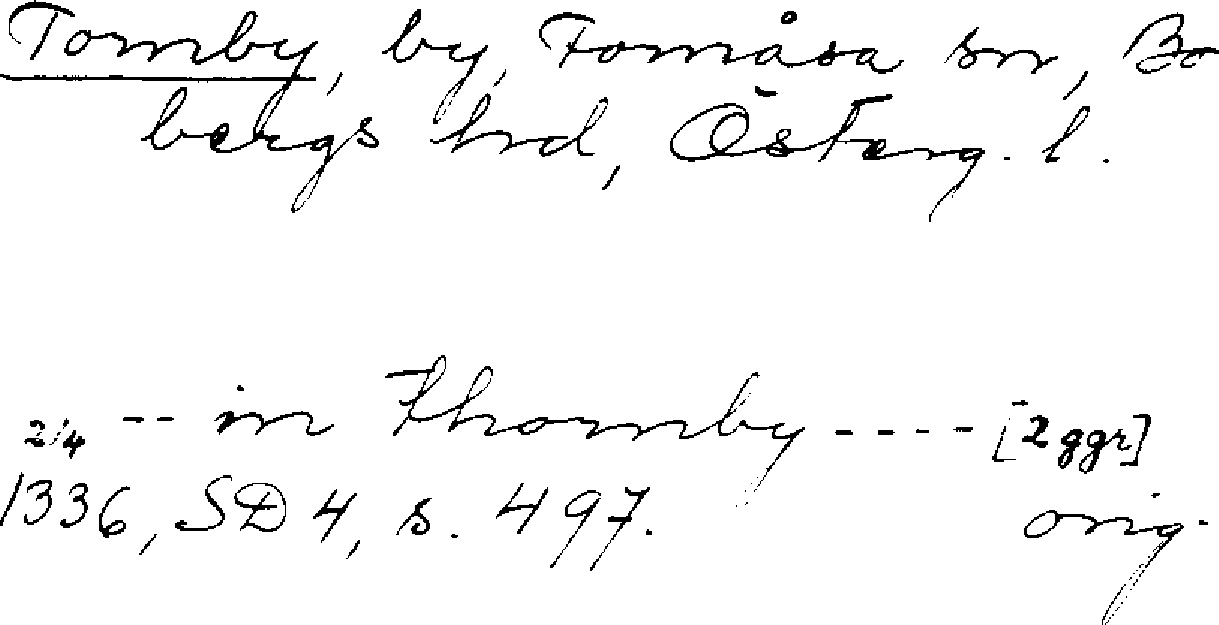 Tornby, by, Fornåsa sn, Bo
bergs hrd, Österg. l.
2/4 -- in Thornby ---- [2 ggr]
1336, SD 4, s. 497. orig.